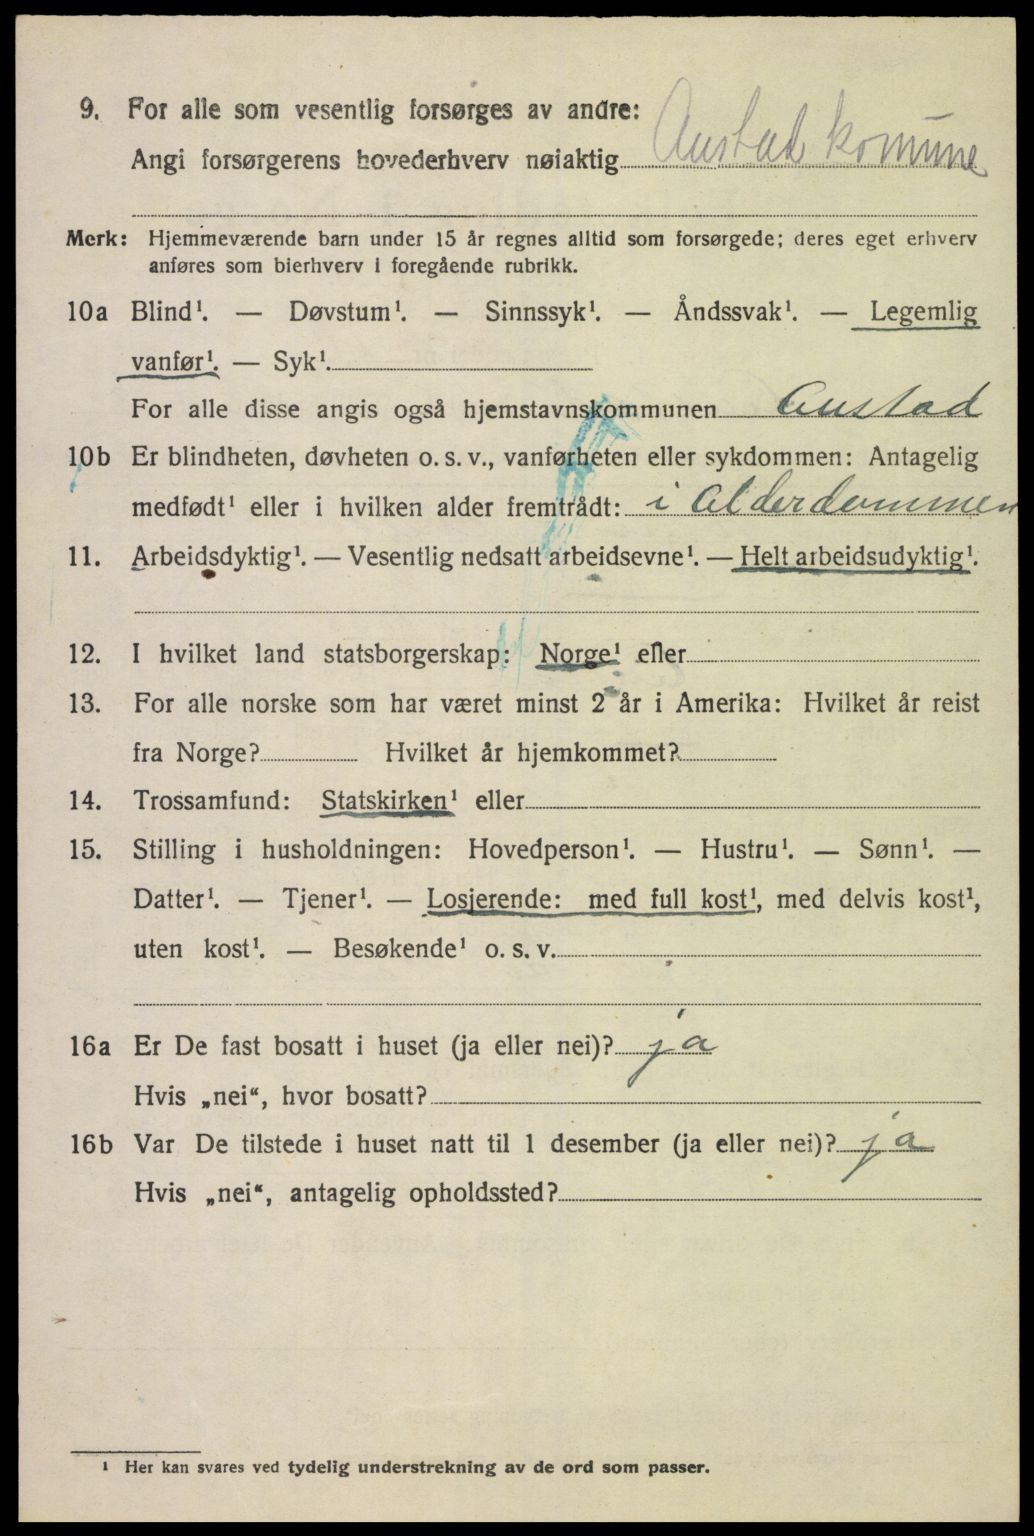 9. For alle som vesentlig forsørges av andre:
Angi forsørgerens hovederhverv nøiaktig Austad komune
Merk: Hjemmeværende barn under 15 år regnes alltid som forsørgede; deres eget erhverv
anføres som bierhverv i foregående rubrikk.
10a Blind¹. — Døvstum¹. — Sinnssyk¹. — Åndssvak¹. — Legemlig
vanfør¹. — Syk¹.
For alle disse angis også hjemstavnskommunen Austad
10b Er blindheten, døvheten o. s. v., vanførheten eller sykdommen: Antagelig
medfødt¹ eller i hvilken alder fremtrådt: i Alderdommen
11. Arbeidsdyktig¹. — Vesentlig nedsatt arbeidsevne¹. — Helt arbeidsudyktig¹.
12. I hvilket land statsborgerskap: Norge¹ eller
13. For alle norske som har været minst 2 år i Amerika: Hvilket år reist
fra Norge? Hvilket år hjemkommet?
14. Trossamfund: Statskirken¹ eller
15. Stilling i husholdningen: Hovedperson¹. — Hustru¹. — Sønn¹. —
Datter¹. — Tjener¹. — Losjerende: med full kost¹, med delvis kost¹,
uten kost¹. — Besøkende¹ o. s. v.
16a Er De fast bosatt i huset (ja eller nei)? ja
Hvis „nei“, hvor bosatt?
16b Var De tilstede i huset natt til 1 desember (ja eller nei)? ja
Hvis „nei“, antagelig opholdssted?
¹ Her kan svares ved tydelig understrekning av de ord som passer.